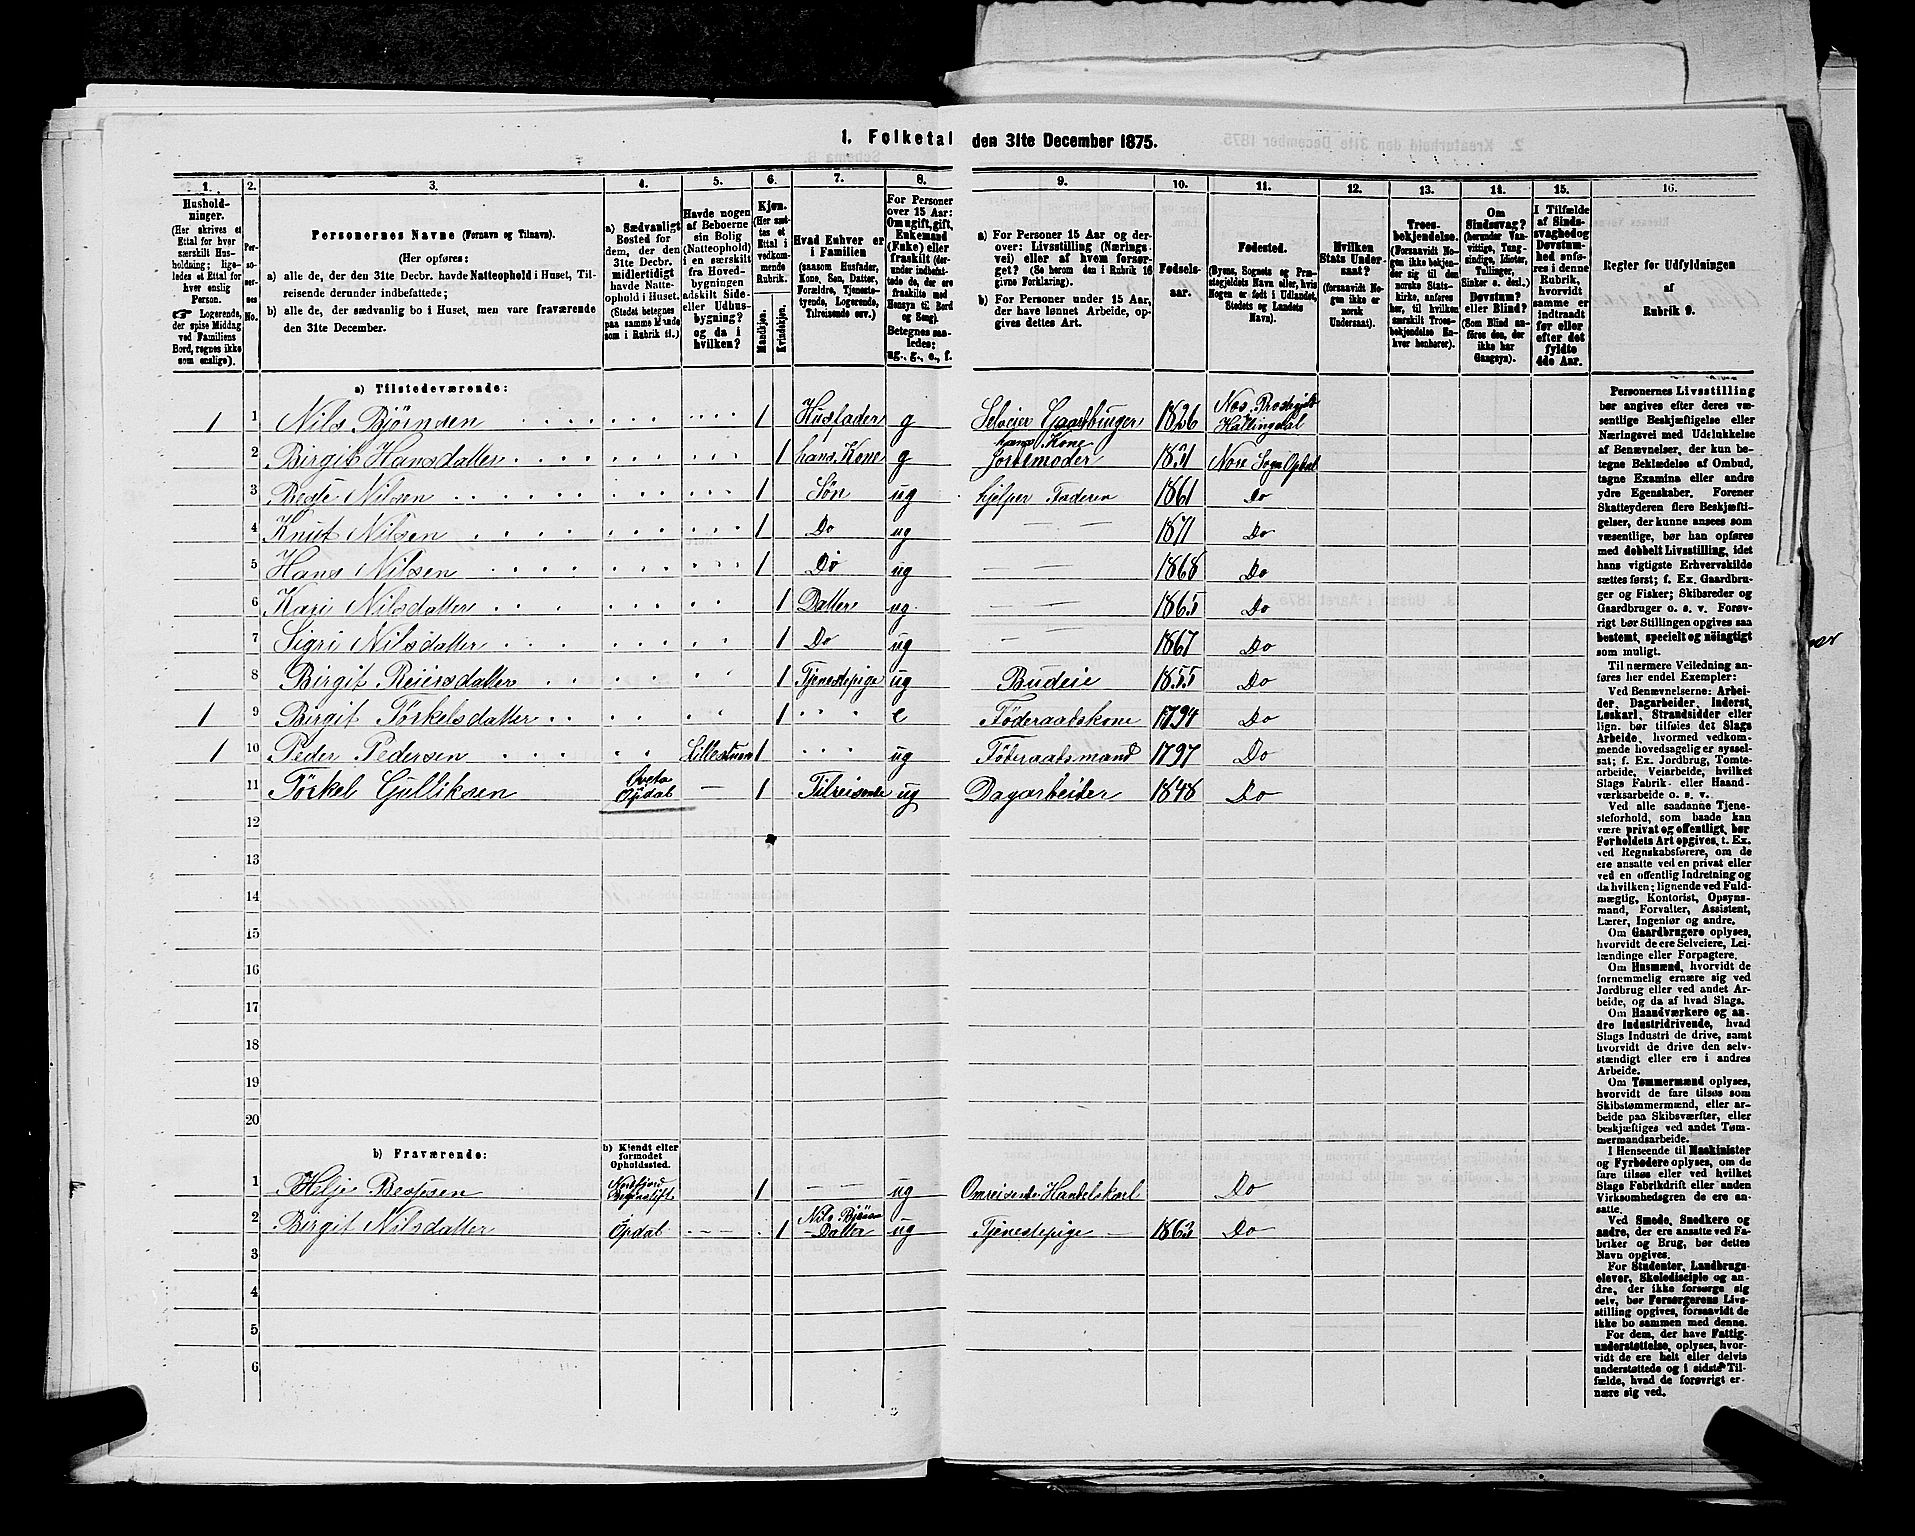 1. Folketal den 31te December 1875.
1. 2. 3. 4. 5. 6. 7. 8. 9. 10. 11. 12. 13. 14. 15. 16.
Husholdninger.
(Her skrives et
Ettal for hver
særskilt Husholdning; ligeledes
et Ettal for
hver enslig
Person.
☞ Logerende,
der spise Middag
ved Familiens
Bord, regnes ikke
som enslige).
Personernes No.
Personernes Navne (Fornavn og Tilnavn).
(Her opføres:
a) alle de, der den 31te Decbr. havde Natteophold i Huset, Tilreisende derunder indbefattede;
b) alle de, der sædvanlig bo i Huset, men vare fraværende
den 31te December.
a) Sædvanligt
Bosted for
dem, der den
31te Decbr.
midlertidigt
havde Natteophold
i Huset.
(Stedet betegnes
paa samme Maade
som i Rubrik 11.)
Havde nogen
af Beboerne
sin Bolig
(Natteophold)
i en særskilt
fra Hovedbygningen
adskilt Side-
eller Udhusbygning?
og da i
hvilken?
Kjøn.
(Her sættes
et
Ettal i
vedkommende
Rubrik.
Mandkjøn.
Kvindekjøn.
Hvad Enhver er
i Familien
(saasom Husfader,
Kone, Søn, Datter,
Forældre, Tjenestetyende,
Logerende,
Tilreisende osv.)
For Personer
over 15 Aar:
Om ugift, gift,
Enkemand
(Enke) eller
fraskilt (derunder
indbefattede
de, der
ere fraskilte med
Hensyn til Bord
og Seng).
Betegnes saaledes:
ug., g., e., f.
a) For Personer 15 Aar og derover:
Livsstilling (Næringsvei)
eller af hvem forsørget?
(Se herom den i Rubrik 16
givne Forklaring).
b) For Personer under 15 Aar,
der have lønnet Arbeide, opgives
dettes Art.
Fødselsaar.
Fødested.
(Byens, Sognets og Præstegjeldets
Navn eller, hvis
Nogen er født i Udlandet,
Stedets og Landets
Navn).
Hvilken
Stats Undersaat?
(forsaavidt Nogen
ikke er
norsk
Undersaat).
Troesbekjendelse.
(Forsaavidt Nogen
ikke bekjender
sig til den
norske Statskirke,
anføres
her, til hvilken
særskilt Troesbekjendelse
Enhver
henhører).
Om
Sindssvag?
(herunder Vanvittige,
Tungsindige,
Idioter,
Tullinger,
Sinker o. desl.)
Døvstum?
eller Blind?
(Som Blind anføres
den, der
ikke har
Gangsyn).
I Tilfælde
af Sindssvaghed
og
Døvstumhed
anføres
i denne
Rubrik,
hvorvidt
samme er
indtraadt
før eller
efter det
fyldte
4de Aar.
Regler for Udfyldningen
af
Rubrik 9.
a) Tilstedeværende:
1 1 Nils Bjørnsen 1 Husfader g Seleier Gaardbruger 1826 Nes Prestegjeld Hallingdal
2 Birgit Hansdatter 1 hans Kone g hans Kone Jordemoder 1831 Nore Sogn Opdal
3 Beate Nilsen 1 Søn ug hjelper Faderen 1861 Do
4 Knut Nilsen 1 Do ug — — 1871 Do
5 Hans Nilsen 1 Do ug — — 1868 Do
6 Kari Nilsdatter 1 Datter ug. — — 1865 Do
7 Sigri Nilsdatter 1 Do ug — — 1867 Do
8 Birgit Reiersdatter 1 Tjenestepige ug Budeie 1855 Do
1 9 Birgit Törkelsdatter 1 e Föderaadskone 1794 Do
1 10 Peder Pedersen Lillestuen 1 ug Föderaadsmand 1797 Do
11 Törkel Gulliksen Opdal — 1 Tilreisende ug Dagarbeider 1848 Do
12
13
14
15
16
17
18
19
20
b) Fraværende:
b) Kjendt eller
formodet
Opholdssted.
1 Helje Bessesen Nordfjord Bergenstift 1 — — ug Omreisende Handelskarl Do
2 Birgit Nilsdatter Opdal 1 Nils Bjørns Datter ug Tjenestepige — 1863 Do
3
4
5
6
Personernes Livsstilling
bør angives efter deres væsentlige
Beskjæftigelse eller
Næringsvei med Udelukkelse
af Benævnelser, der kun betegne
Beklædelse af Ombud,
tagne Examina eller andre
ydre Egenskaber. Forener
Skatteyderen flere Beskjæftigelser,
der kunne ansees som
væsentlige, bør han opføres
med dobbelt Livsstilling, idet
hans vigtigste Erhvervskilde
sættes først; f. Ex. Gaardbruger
og Fisker; Skibsreder og
Gaardbruger o. s. v. Forøvrigt
bør Stillingen opgives saa
bestemt, specielt og nøiagtigt
som muligt.
Til nærmere Veiledning anføres
her endel Exempler:
Ved Benævnelserne: Arbeider,
Dagarbeider, Inderst,
Løskarl, Strandsidder eller
lign. bør tilføies det Slags
Arbeide, hvormed vedkommende
hovedsagelig er sysselsat;
f. Ex. Jordbrug, Tomtearbeide,
Veiarbeide, hvilket
Slags Fabrik- eller Haandværksarbeide
o. s. v.
Ved alle saadanne Tjenesteforhold,
som baade kan
være privat og offentligt, bør
Forholdets Art opgives, t. Ex.
ved Regnskabsførere, om de
ere ansatte ved en privat eller
ved en offentlig Indretning og
da hvilken; lignende ved Fuldmægtig,
Kontorist, Opsynsmand,
Forvalter, Assistent,
Lærer, Ingeniør og andre.
Om Gaardbrugere oplyses,
hvorvidt de ere Selveiere, Leilændinge
eller Forpagtere.
Om Husmænd, hvorvidt de
fornemmelig ernære sig ved
Jordbrug eller ved andet Arbeide,
og da af hvad Slags.
Om Haandværkere og andre
Industridrivende, hvad
Slags Industri de drive, samt
hvorvidt de drive den selvstændigt
eller ere i andres
Arbeide.
Om Tømmermænd oplyses,
hvorvidt de fare tilsøs som
Skibstømmermænd, eller arbeide
paa Skibsværfter, eller
beskjæftiges ved andet Tømmermandsarbeide.
I Henseende til Maskinister
og Fyrbødere oplyses, om de
fare tilsøs eller ved hvilket
Slags Fabrikdrift eller anden
Virksomhedsgren de ere ansatte.
Ved Smede, Snedkere og
andre, der ere ansatte ved Fabriker
og Brug, bør dettes
Navn opgives.
For Studenter, Landbrugselever,
Skoledisciple og andre,
der ikke forsørge sig
selv, bør Forsørgerens Livsstilling
opgives, forsaavidt de
ikke bo sammen med denne.
For dem, der have Fattigunderstøttelse,
oplyses, hvorvidt
de ere helt eller delvis
understøttede og i sidste Tilfælde,
hvad de forøvrigt ernære
sig ved.